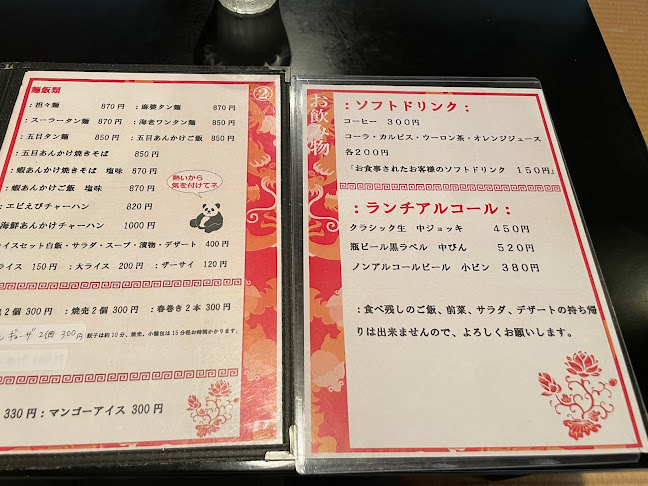 麺飯類
②
:担々麺 870円 :麻婆タン麺 870円
:スーラータン麺 870円 :海老ワンタン麺 850円
:五目タン麺 850円 :五目あんかけご飯 850円
:五目あんかけ焼きそば 850円
:蝦あんかけ焼きそば 塩味 870円
:蝦あんかけご飯 塩味 870円
:エビえびチャーハン 820円
海鮮あんかけチャーハン 1000円
熱いから
気を付けてネ
イスセット白飯・サラダ・スープ・漬物・デザート 400円
ライス 150円:大ライス 200円:ザーサイ 120円
2個 300円:焼売2個 300円:春巻き2本 300円
ギョーザ 2個 300円 餃子は約10分、焼売、小籠包は15分程お時間かかります。
330円:マンゴーアイス 300円
お飲み物
:ソフトドリンク:
コーヒー 300円
コーラ・カルピス・ウーロン茶・オレンジジュース
各200円
「お食事されたお客様のソフトドリンク 150円」
:ランチアルコール:
クラシック生 中ジョッキ 450円
瓶ビール黒ラベル 中びん 520円
ノンアルコールビール 小ビン 380円
:食べ残しのご飯、前菜、サラダ、デザートの持ち帰
りは出来ませんので、よろしくお願いします。